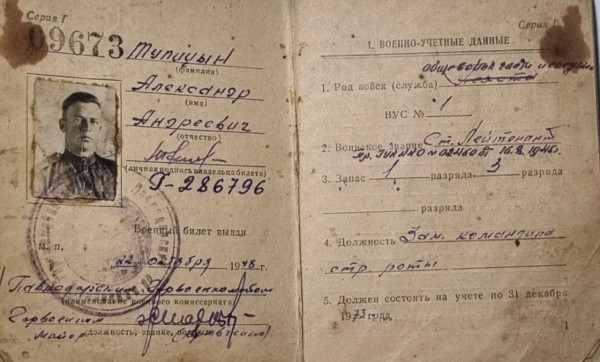 Серия Г
09673
Тупицын
(фамилия)
Александр
(имя)
Андреевич
(отчество)
(личная подпись владельца билета)
Г-286796
Военный билет выдан
М. п.
„22" октября 1948 г.
Павлодарским Горвоенкоматом
(наименование военного комиссариата)
Горвоенком
майор
(должность, звание,
Серия Г
1. ВОЕННО-УЧЕТНЫЕ ДАННЫЕ
1. Род войск (служба)
ВУС № 1
2. Воинское звание Ст. Лейтенант
16.8.1946г.
3. Запас 1 разряда 3 разряда
разряда
4. Должность Зам. командира
стр. роты
5. Должен состоять на учете по 31 декабря
1973 года
1